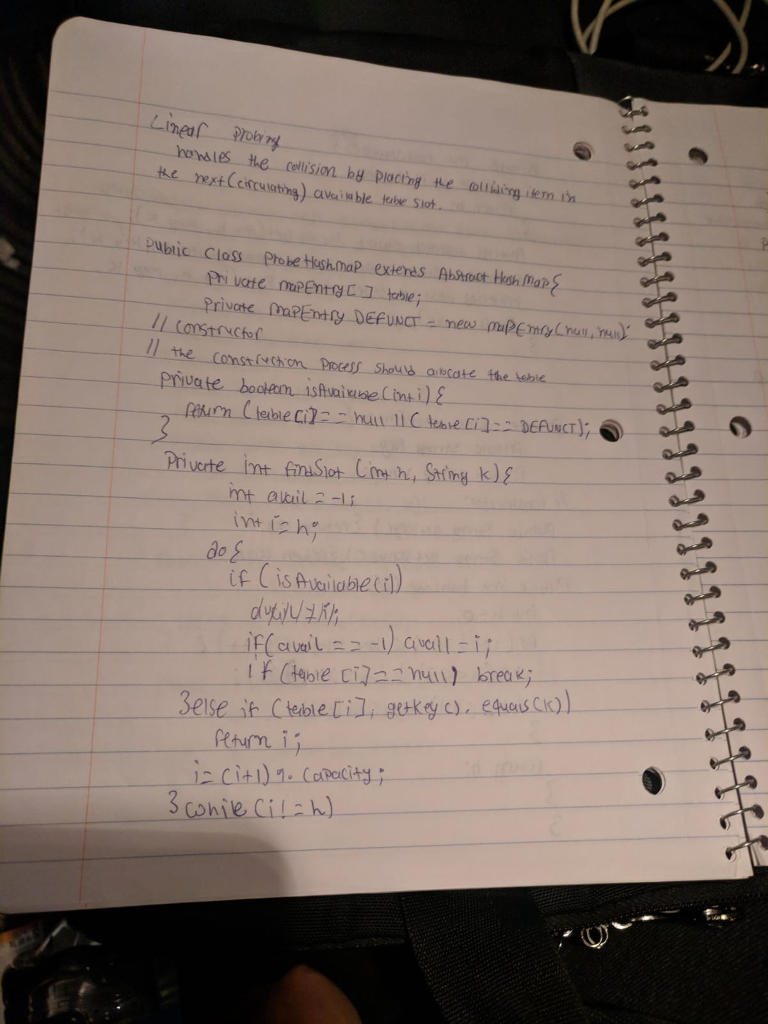 Linear probing
handles the collision by placing the colliding item in
the next (circulating) available table slot.
public class ProbeHashmap extends AbstractHashMap{
private mapEntry[] table;
private mapEntry DEFUNCT = new mapEntry(null, null);
// constructor
// the construction process should allocate the table
private boolean isAvailable(int i){
return (table[i]== null || (table[i]== DEFUNCT);
}
Private int findSlot (int h, String k){
int avail = -1;
int i=h;
do{
if (isAvailable(i))
if(avail == -1) avail = i;
if (table [i]==null) break;
}else if (table[i], getkey(). equals(k))
return i;
i= (i+1) %. capacity;
}while (i!=h)